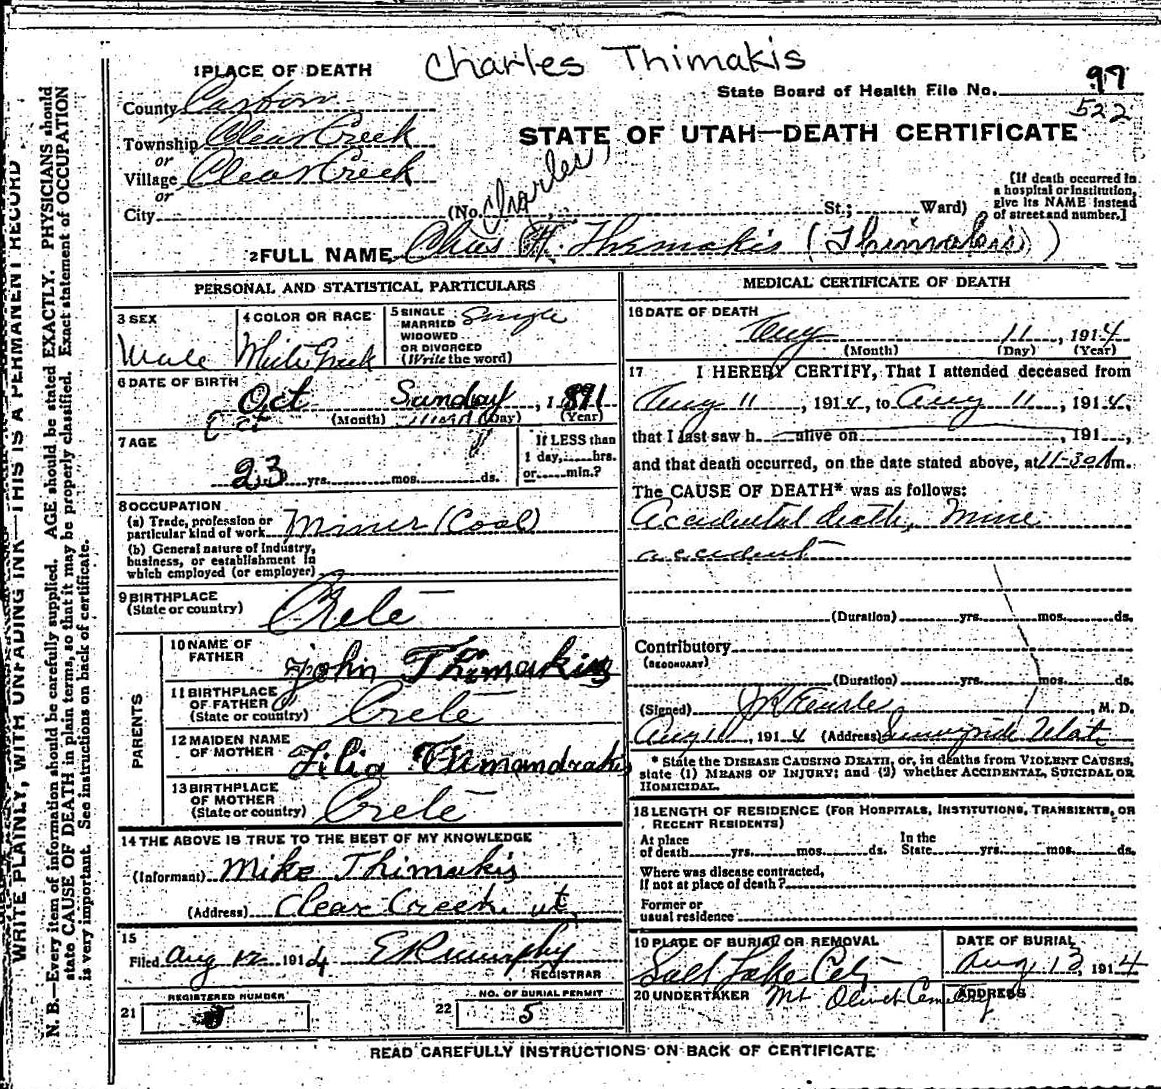 Charles Thimakis
1 PLACE OF DEATH
State Board of Health File No. 97
522
County Carbon
Township Clear Creek
or
Village Clear Creek
or
City (No. St.; Ward)
STATE OF UTAH—DEATH CERTIFICATE
[If death occurred in a hospital or institution, give its NAME instead of street and number.]
Charles
2 FULL NAME Chas H. Themakis (Thimakis)
PERSONAL AND STATISTICAL PARTICULARS
3 SEX
Male
4 COLOR OR RACE
White Greek
5 SINGLE
MARRIED
WIDOWED
OR DIVORCED
(Write the word)
Single
6 DATE OF BIRTH
Oct Sunday, 1891
(Month) (Day) (Year)
Oct
7 AGE
23 yrs. mos. ds.
If LESS than
1 day, hrs.
or min.?
8 OCCUPATION
(a) Trade, profession or
particular kind of work Miner (Coal)
(b) General nature of Industry,
business, or establishment in
which employed (or employer)
9 BIRTHPLACE
(State or country) Crete
PARENTS
10 NAME OF
FATHER John Thimakis
11 BIRTHPLACE
OF FATHER
(State or country) Crete
12 MAIDEN NAME
OF MOTHER Filia
13 BIRTHPLACE
OF MOTHER
(State or country) Crete
14 THE ABOVE IS TRUE TO THE BEST OF MY KNOWLEDGE
(Informant) Mike Thimakis
(Address) Clear Creek ut
15
Filed Aug 12 1914 E R Murphy
REGISTRAR
21 REGISTERED NUMBER 5
22 NO. OF BURIAL PERMIT 5
MEDICAL CERTIFICATE OF DEATH
16 DATE OF DEATH
Aug 11, 1914
(Month) (Day) (Year)
17 I HEREBY CERTIFY, That I attended deceased from
Aug 11, 1914, to Aug 11, 1914,
that I last saw h alive on , 191 ,
and that death occurred, on the date stated above, at 11-30 Am.
The CAUSE OF DEATH* was as follows:
Accidental death, Mine
accident
(Duration) yrs. mos. ds.
Contributory
(SECONDARY)
(Duration) yrs. mos. ds.
(Signed) , M. D.
Aug 11, 1914 (Address) Sunnyside Utah
* State the DISEASE CAUSING DEATH, or, in deaths from VIOLENT CAUSES,
state (1) MEANS OF INJURY; and (2) whether ACCIDENTAL, SUICIDAL OR
HOMICIDAL.
18 LENGTH OF RESIDENCE (FOR HOSPITALS, INSTITUTIONS, TRANSIENTS, OR
RECENT RESIDENTS)
At place
of death yrs. mos. ds.
In the
State yrs. mos. ds.
Where was disease contracted,
If not at place of death?
Former or
usual residence
19 PLACE OF BURIAL OR REMOVAL
Salt Lake City
DATE OF BURIAL
Aug 13, 1914
20 UNDERTAKER Mt Olivet Cemetery
ADDRESS
READ CAREFULLY INSTRUCTIONS ON BACK OF CERTIFICATE
WRITE PLAINLY, WITH UNFADING INK—THIS IS A PERMANENT RECORD
N. B.—Every item of information should be carefully supplied. AGE should be stated EXACTLY. PHYSICIANS should
state CAUSE OF DEATH in plain terms, so that it may be properly classified. Exact statement of OCCUPATION
is very important. See instructions on back of certificate.